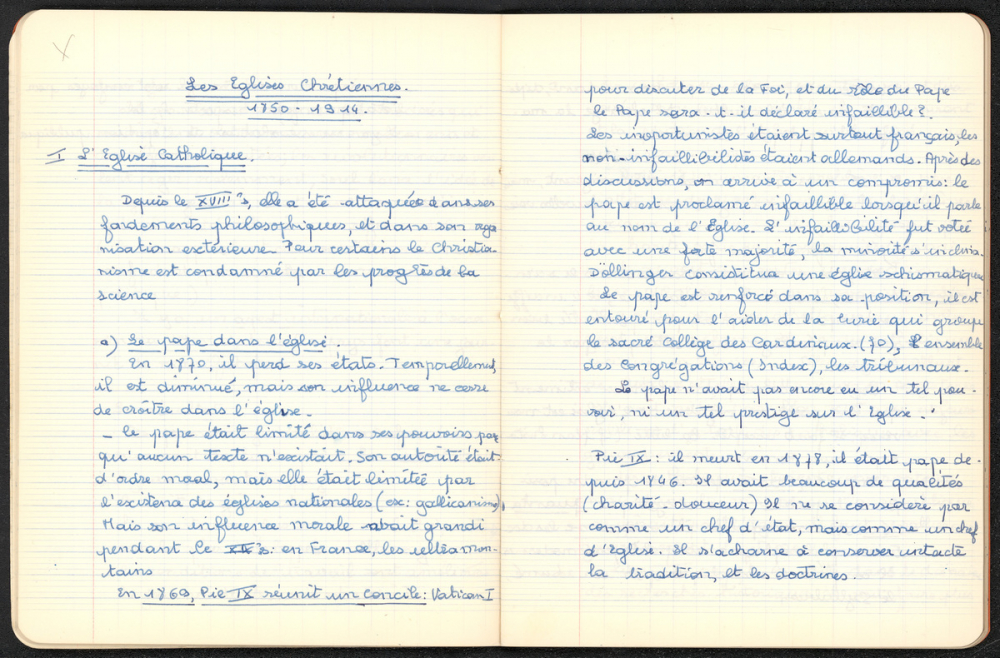 Les Eglises Chrétiennes.
1850 - 1914.
I L'Eglise Catholique.
Depuis le XVIII°s, elle a été attaquée dans ses
fondements philosophiques, et dans son orga
nisation extérieure. Pour certains le Christia-
nisme est condamné par les progrès de la
science
a) Le pape dans l'église.
En 1870, il perd ses états. Temporellement,
il est diminué, mais son influence ne cesse
de croître dans l'église.
- le pape était limité dans ses pouvoirs par
qu'aucun texte n'existait. Son autorité était
d'ordre moral, mais elle était limitée par
l'existena des églises nationales (ex: gallicanisme),
Mais son influence morale avait grandi
pendant le XIX°s: en France, les ultramon-
tains
En 1869, Pie IX réunit un concile: Vatican I
pour discuter de la Foi, et du rôle du Pape
le Pape sera-t-il déclaré infaillible?
Les inoportunistes étaient surtout français, les
non-infaillibilistes étaient allemands. Après des
discussions, on arrive à un compromis: le
pape est proclamé infaillible lorsqu'il parle
au nom de l'Église. L'infaillibilité fut votée
avec une forte majorité, la minorité s'inclina.
Döllinger constitua une église schismatique
Le pape est renforcé dans sa position, il est
entouré pour l'aider de la Curie qui groupe
le sacré Collège des Cardinaux. (70), l'ensemble
des Congrégations (Index), les tribunaux.
Le pape n'avait pas encore eu un tel pou-
voir, ni un tel prestige sur l'Eglise.
Pie IX: il meurt en 1878, il était pape de-
puis 1846. Il avait beaucoup de qualités
(charité - douceur) Il ne se considère par
comme un chef d'état, mais comme un chef
d'Eglise. Il s'acharne à conserver intacte
la tradition, et les doctrines.